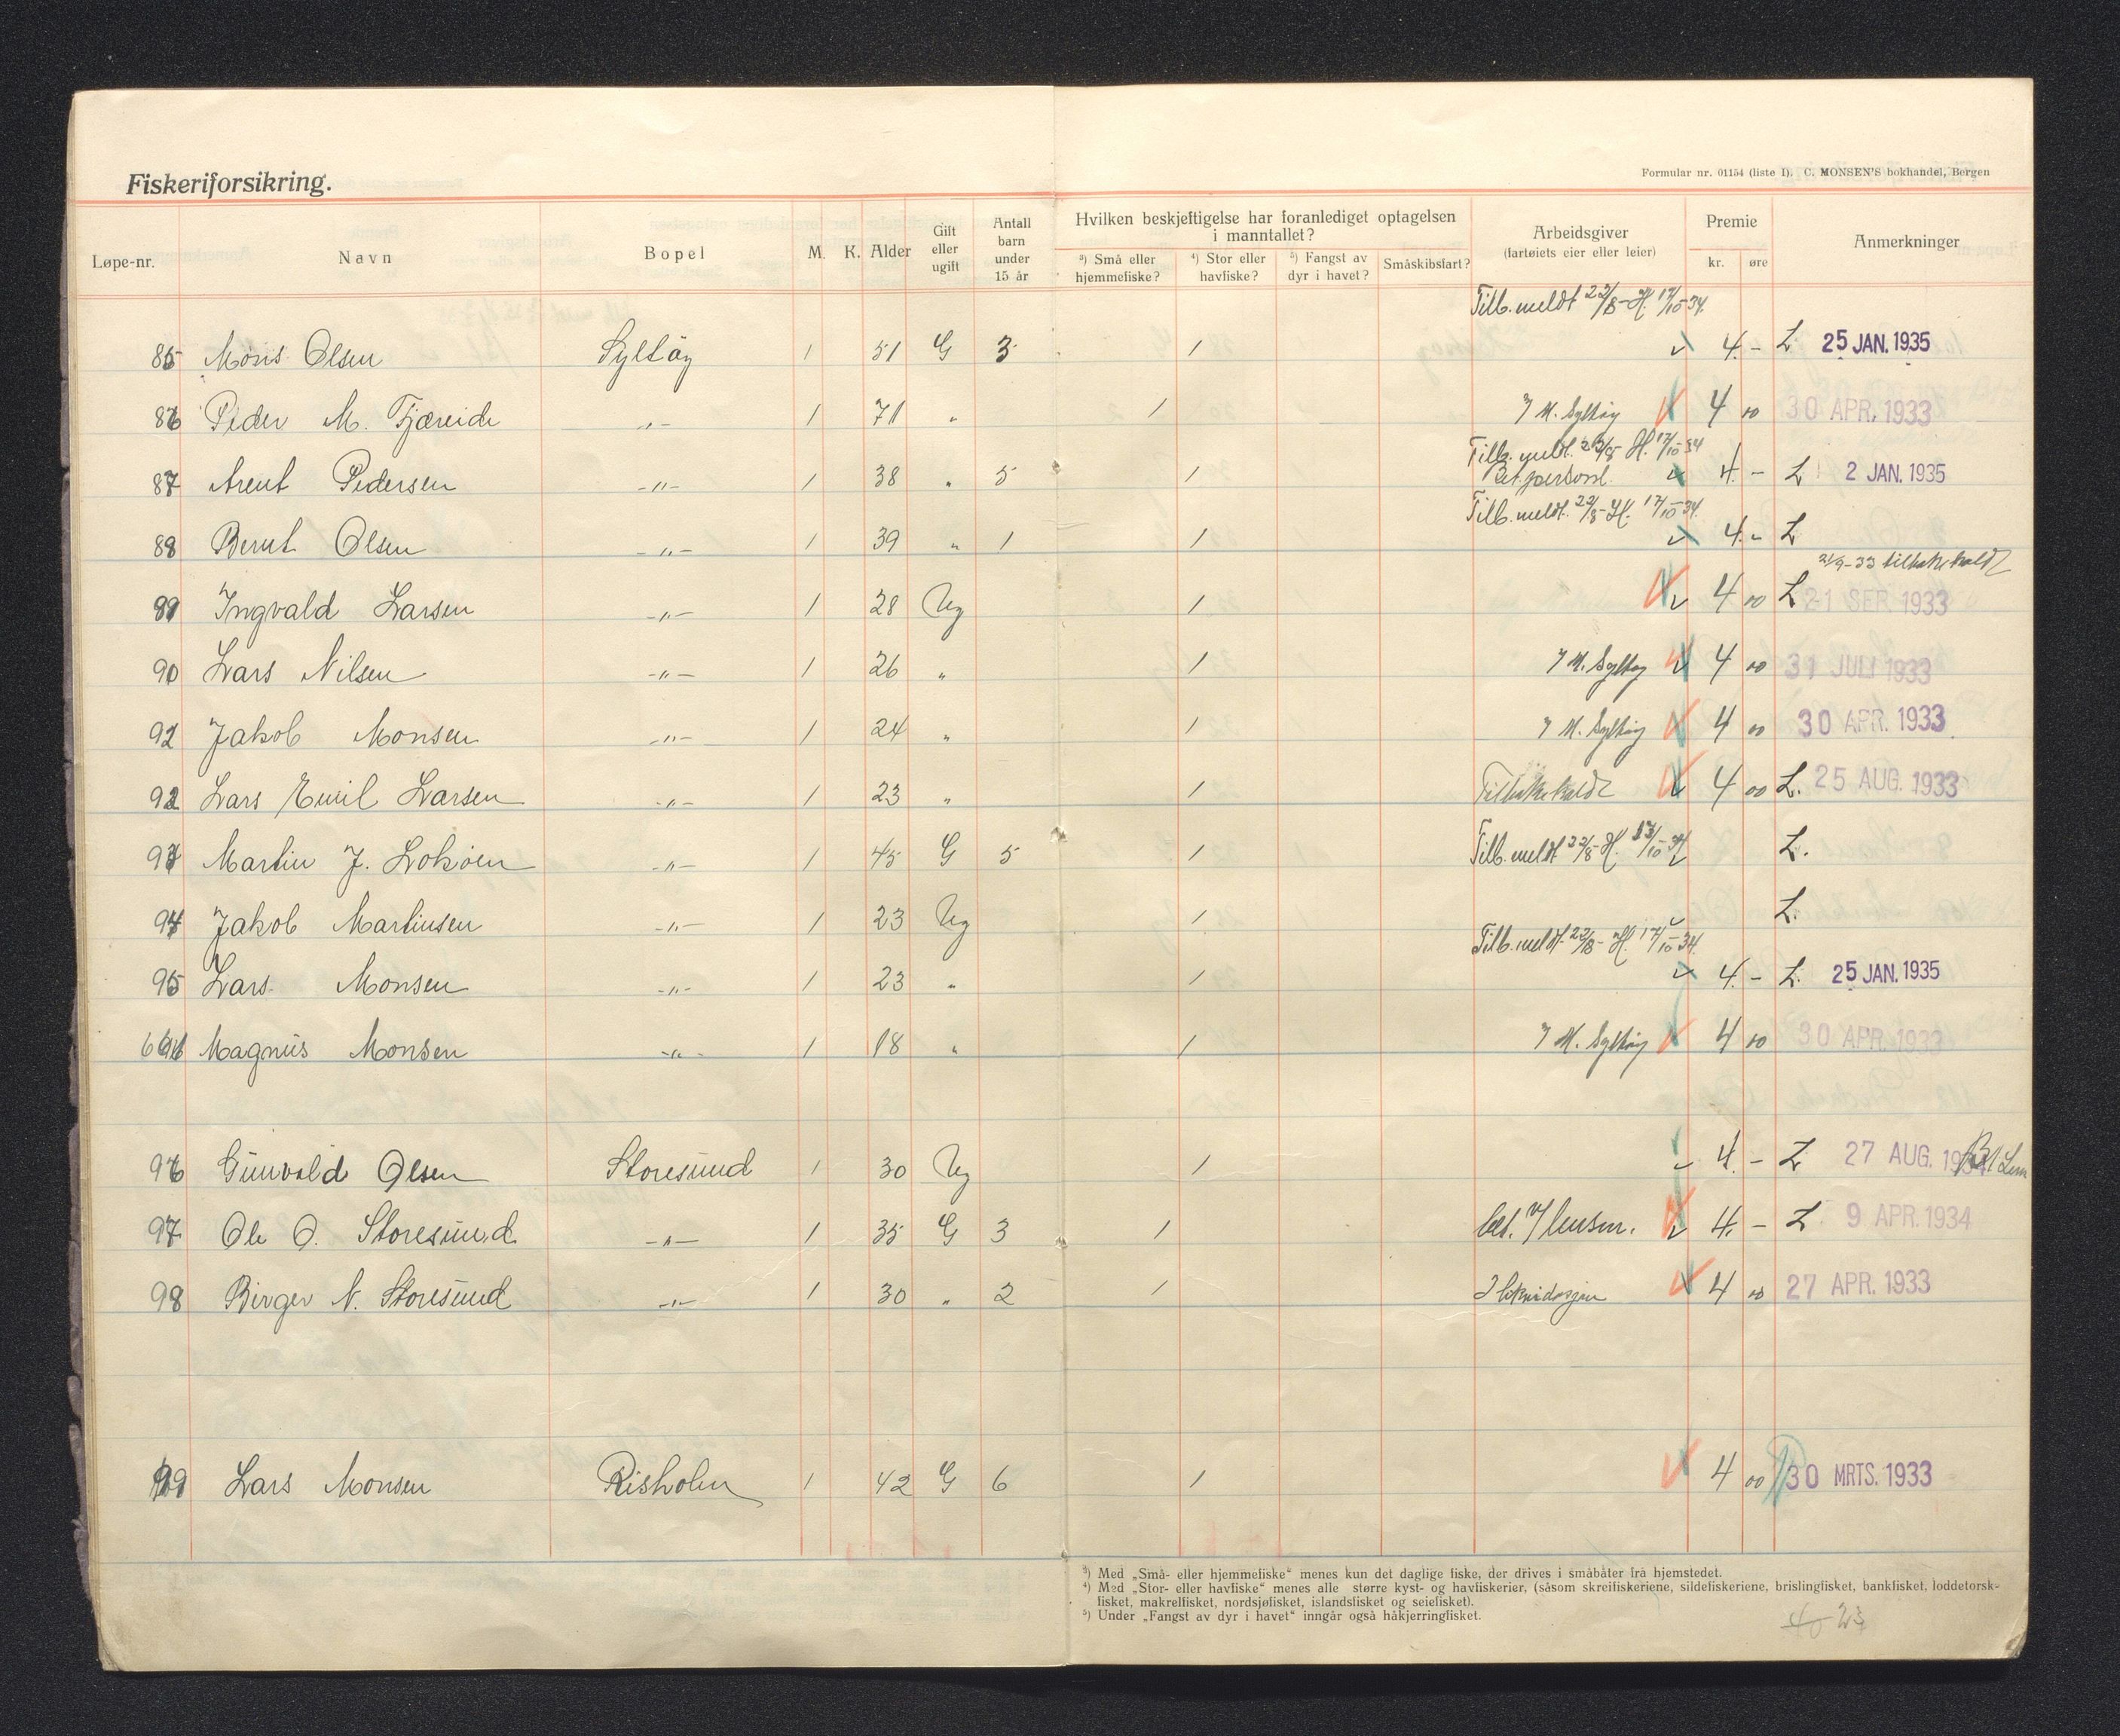 Fiskeriforsikring.
Formular nr. 01154 (liste I). C. MONSEN'S bokhandel, Bergen
Løpe-nr. Navn Bopel M. K. Alder Gift eller ugift Antall barn under 15 år Hvilken beskjeftigelse har foranlediget optagelsen i manntallet? ³) Små eller hjemmefiske? ⁴) Stor eller havfiske? ⁵) Fangst av dyr i havet? Småskibsfart? Arbeidsgiver (fartøiets eier eller leier) Premie kr. øre Anmerkninger
Tilb. meldt 22/8 - H. 17/10-34.
85 Mons Olsen Syltøy 1 51 G 3 1 4 - L 25 JAN. 1935
86 Peder M. Fjæreide -"- 1 71 " 1 M. Syltøy 4 00 30 APR. 1933
Tilb. meldt. 22/8 H. 17/10-34
87 Arent Pedersen -"- 1 38 " 5 1 Bet. personl. 4. - L 2 JAN. 1935
Tilb. meldt. 22/8 - H. 17/10-34.
88 Bernt Olsen -"- 1 39 " 1 1 4. - L
21/9-33 tilbakekaldt
89 Ingvald Larsen -"- 1 28 Ug 1 4 00 L 21 SEP. 1933
90 Lars Nilsen -"- 1 26 " 1 M. Syltøy 4 00 31 JULI 1933
92 Jakob Monsen -"- 1 24 " 1 M. Syltøy 4 00 30 APR. 1933
92 Lars Emil Larsen -"- 1 23 " 1 Tilbakekaldt 4 00 L. 25 AUG. 1933
93 Martin J. Lokøen -"- 1 45 G 5 1 Tilb. meldt 22/8 - H. 17/10-34 L.
94 Jakob Martinsen -"- 1 23 Ug 1 L.
Tilb. meldt 22/8 - H. 17/10-34.
95 Lars Monsen -"- 1 23 " 1 4. - L. 25 JAN. 1935
Magnus Monsen -"- 1 18 " 1 M. Syltøy 4 00 30 APR. 1933
96 Gunvald Olsen Storesund 1 30 Ug 1 4. - L 27 AUG. 1934
97 Ole O. Storesund -"- 1 35 G 3 1 4. - L 9 APR. 1934
98 Birger N. Storesund -"- 1 30 " 2 1 4 00 27 APR. 1933
99 Lars Monsen Risholm 1 42 G 6 1 4 00 30 MRTS. 1933
³) Med „Små- eller hjemmefiske“ menes kun det daglige fiske, der drives i småbåter frå hjemstedet.
⁴) Med „Stor- eller havfiske“ menes alle større kyst- og havfiskerier, (såsom skreifiskeriene, sildefiskeriene, brislingfisket, bankfisket, loddetorsk-
fisket, makrelfisket, nordsjøfisket, islandsfisket og seiefisket).
⁵) Under „Fangst av dyr i havet“ inngår også håkjerringfisket.